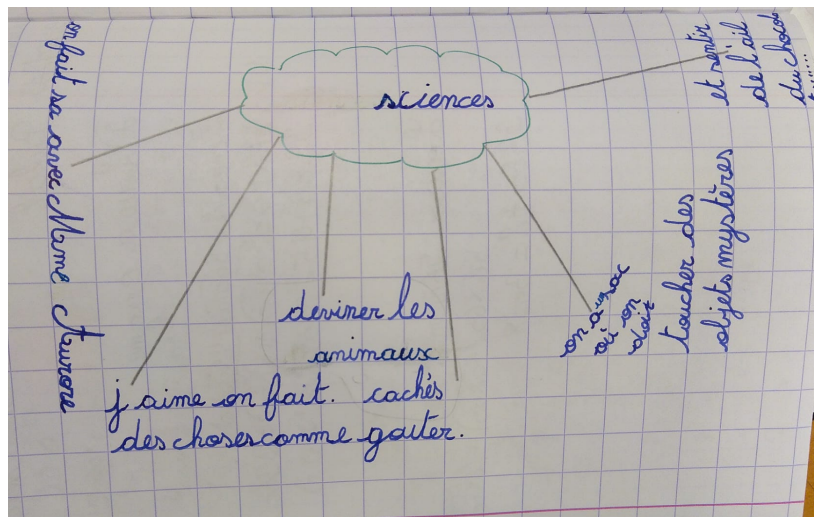 sciences
on fait sa avec Mame Aurore
j'aime on fait.
des choses comme gouter.
deviner les
animaux
cachés
on a un sac
où on
doit
toucher des
objets mystères
et sentir
de l'ail
du chocol